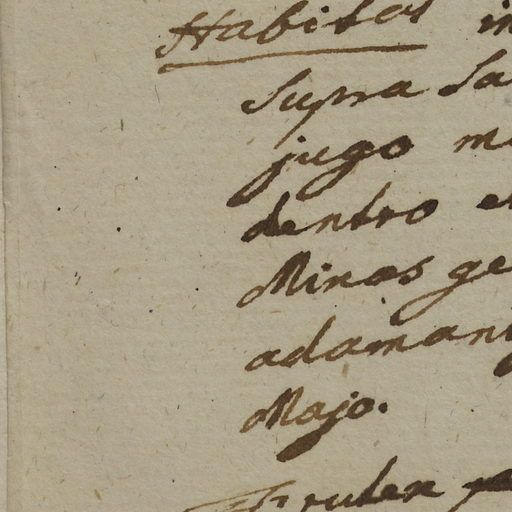 Habitat in
Supra Sa
jugo m
dentro e
Minas ge
adaman
Majo.
Frutex